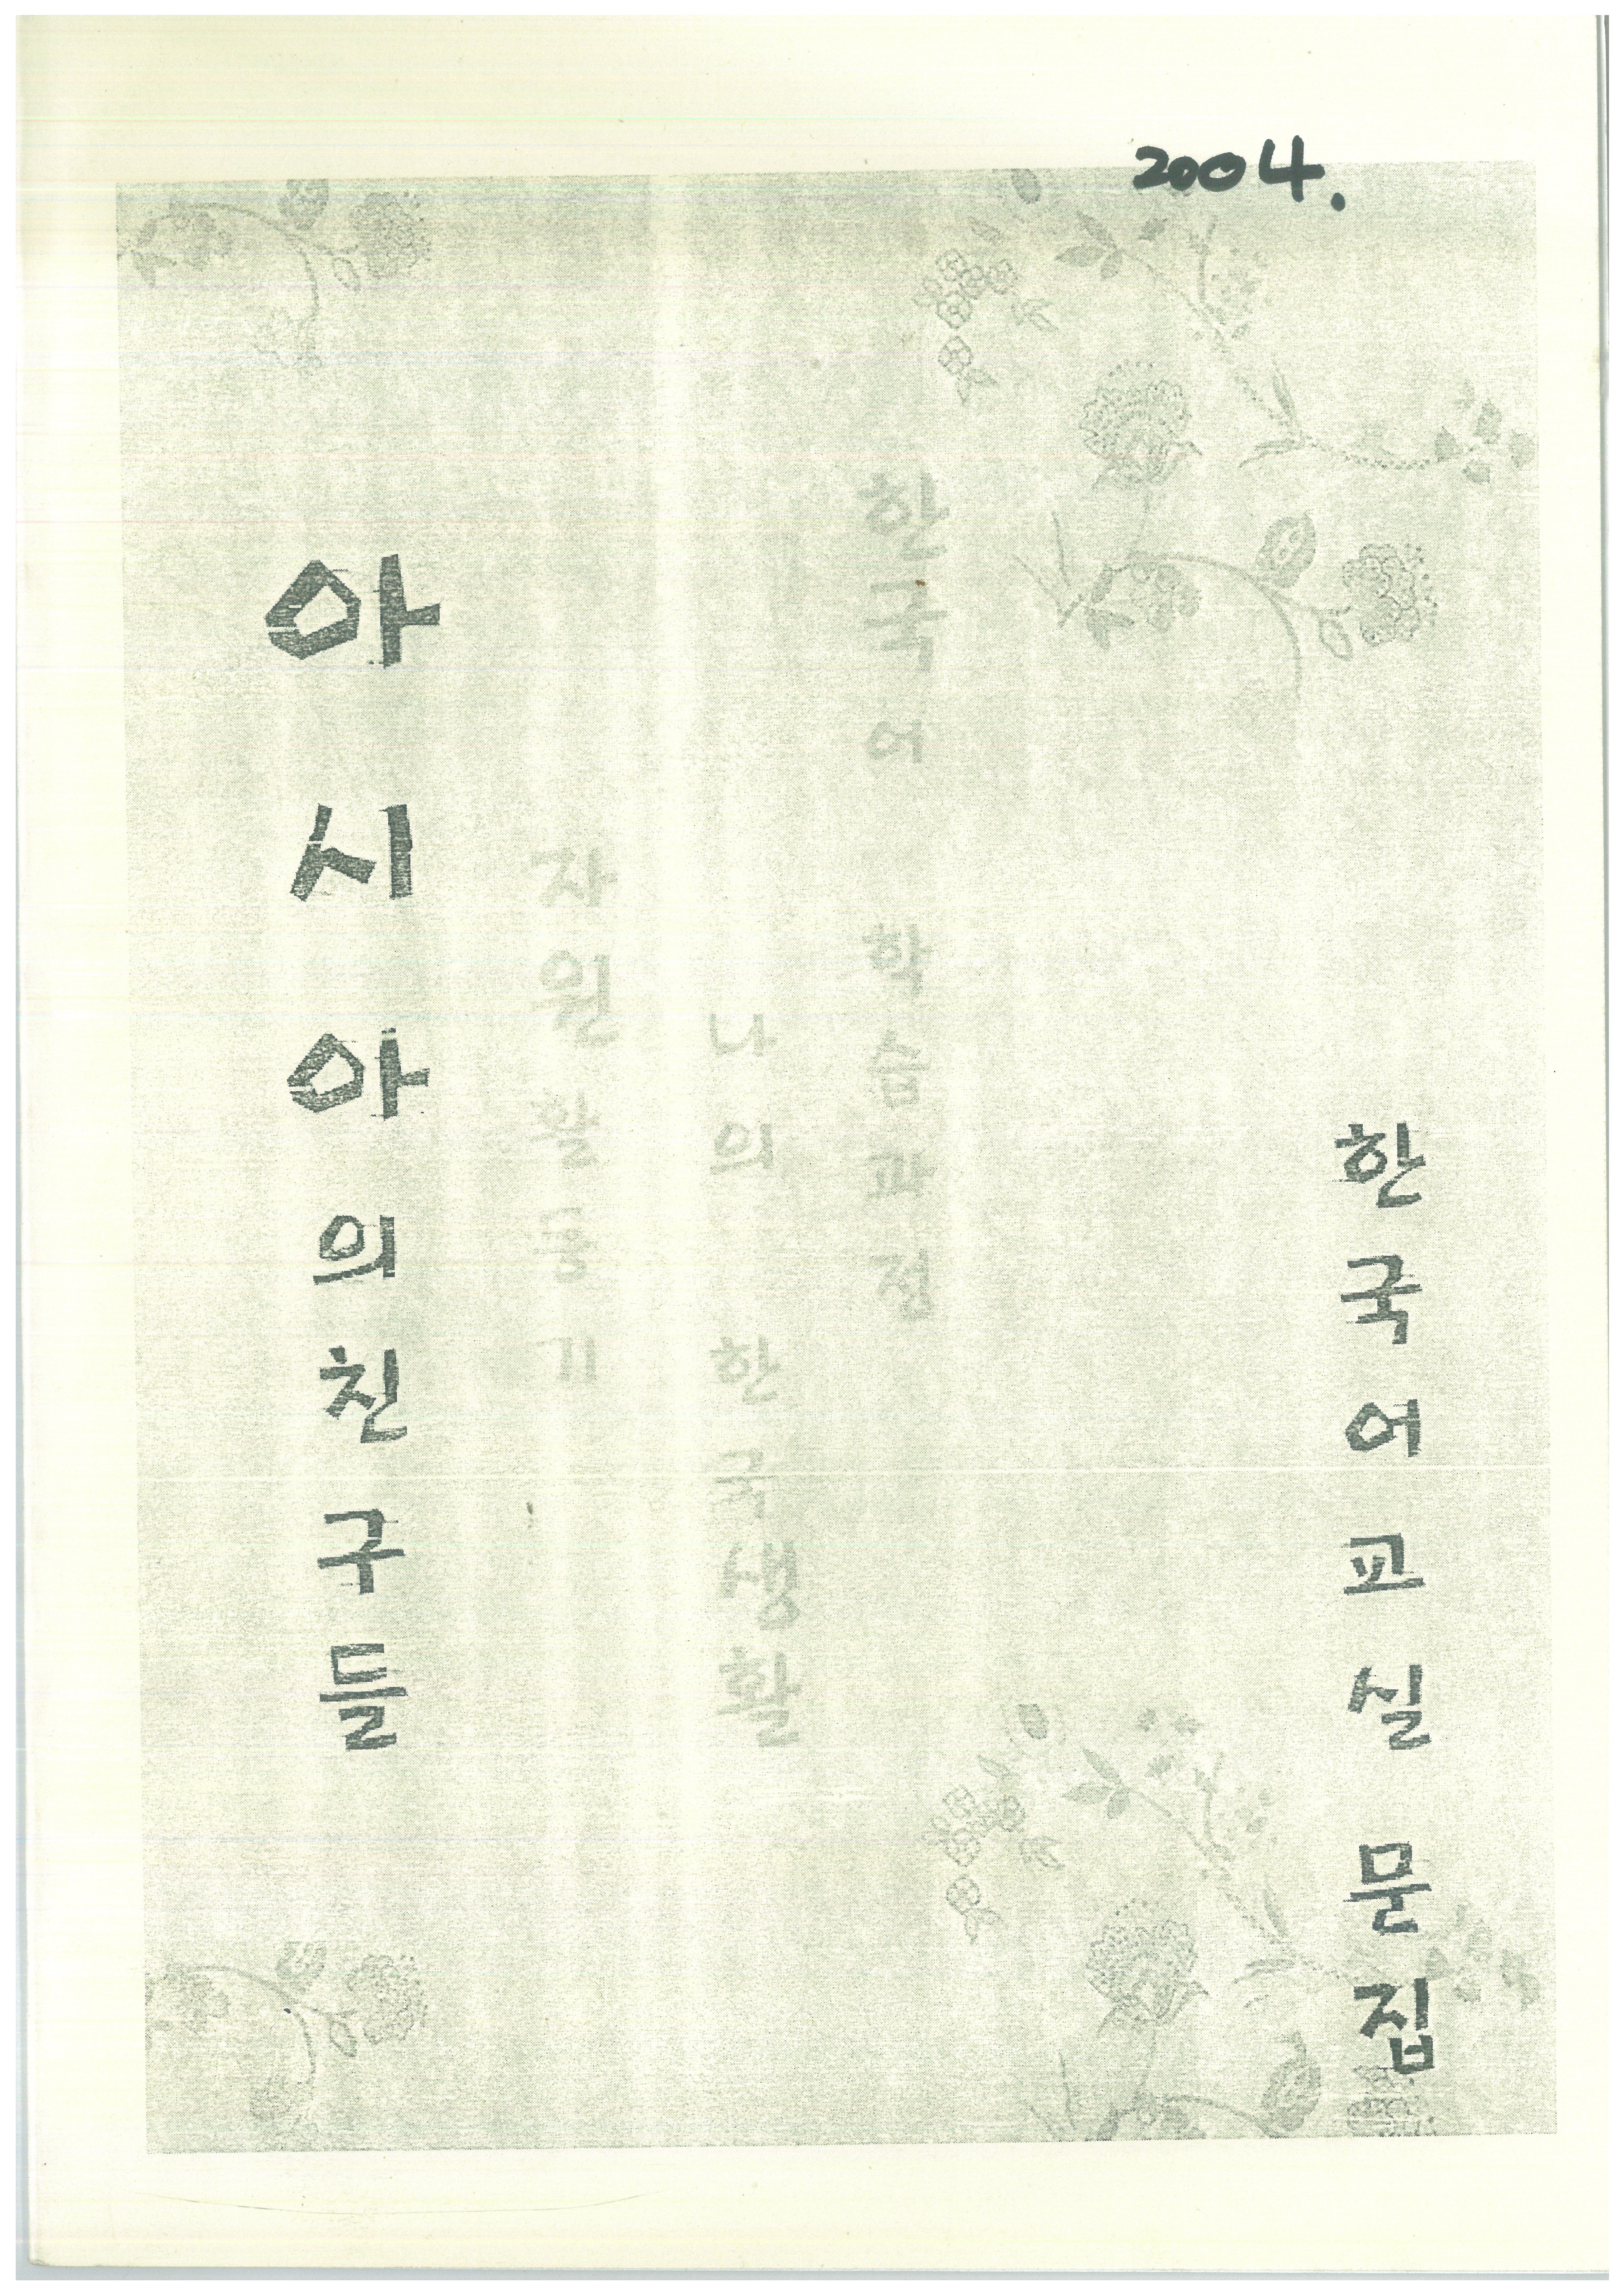 2004.
아시아의친구들
자원활동기
나의 한국생활
한국어 학습과정
한국어교실 문집